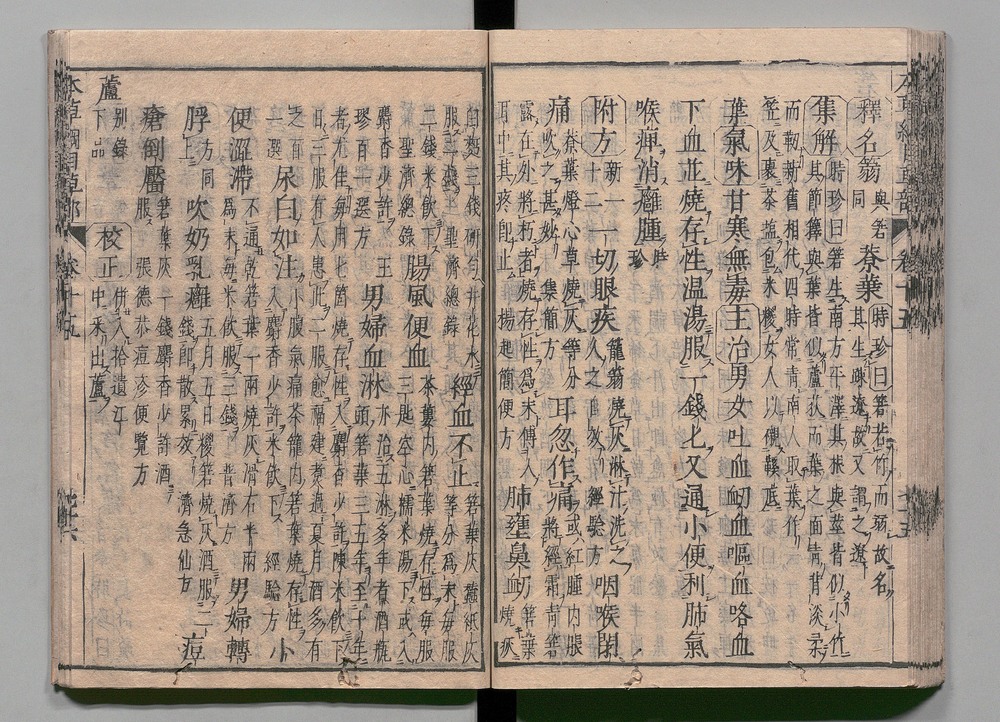 釋名䈵與箬同䔿葉時珍曰箬若竹而弱故名
其生疎遼故又謂之遼
集解時珍曰箬生南方平澤其根與莖皆似小竹
其節籜與葉皆似蘆荻而葉之面青背淡柔
而韌新舊相代四時常青南人取葉作
笠及裹茶鹽包米糉女人以襯鞋底
葉氣味甘寒無毒主治男女吐血衄血嘔血咯血
下血並燒存性溫湯服一錢匕又通小便利肺氣
喉痺消癰腫時珍
附方新一十二一切眼疾籠䈵燒灰淋汁洗之
久之自效經驗方咽喉閉
痛䔿葉燈心草燒灰等分
吹之甚妙集簡方耳忽作痛或紅腫內脹
將經霜青箬
露在外將朽者燒存性為末傅入
耳中其疼即止楊起簡便方肺壅鼻衄箬葉
燒灰
白麪三錢研勻井花水
服二錢聖濟總錄經血不止箬葉灰蠶紙灰
等分為末每服
二錢米飲下
聖濟總錄腸風便血茶簍內箬葉燒存性每服
三匙空心糯米湯下或入
麝香少許王
璆百一選方男婦血淋亦治五淋多年煮酒瓶
頭箬葉三五年至十年
者尤佳每用七箇燒存性入麝香少許陳米飲下
日三服有人患此二服愈福建煮過夏月酒多有
之百一選方尿白如注小腹氣痛茶籠內箬葉燒存性
入麝香少許米飲下經驗方小
便澀滯不通乾箬葉一兩燒灰滑石半兩
為末每米飲服三錢普濟方男婦轉
脬方同上吹奶乳癰五月五日糉箬燒灰酒服二
錢即散累效濟急仙方痘
瘡倒靨箬葉灰一錢麝香少許酒
服張德恭痘疹便覽方
蘆別錄下品校正併入拾遺江
中采出蘆